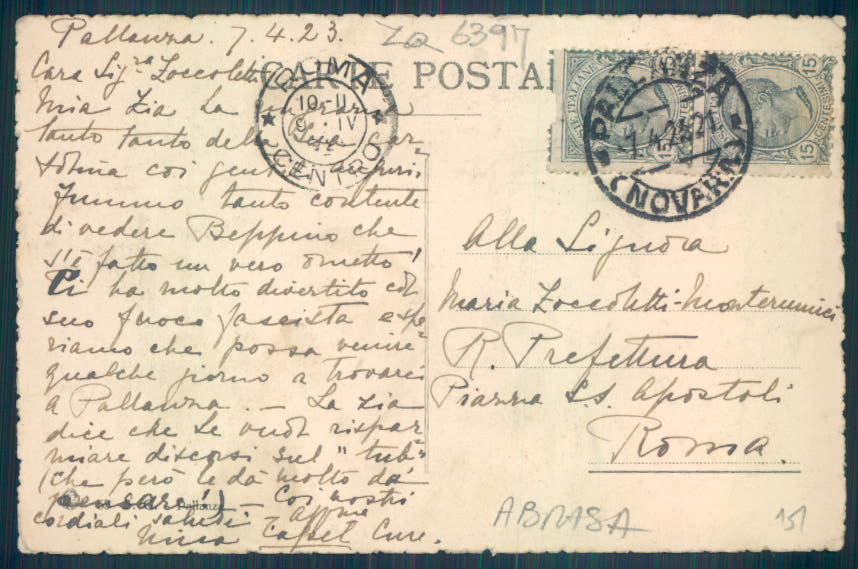 Pallanza. 7.4.23.
ZQ 6397
CARTE POSTAL
Cara Sig.ra Zoccoletti
Mia Zia La
tanto tanto della Sua car-
tolina coi gent. auguri.
Fummo tanto contente
di vedere Beppino che
s'è fatto un vero ometto!
Ci ha molto divertito col
suo fuoco fascista e spe-
riamo che possa venire
qualche giorno a trovarci
a Pallanza. — La zia
dice che Le vuol rispar
miare discorsi sul "tub"
(che però le dà molto da
pensare!) — Coi nostri
cordiali saluti — affme
Nina Cassel Cure.
Pallanza
ROMA
CENTRO
10-11
IV
PALLANZA
(NOVARA)
POSTE ITALIANE
15 CENTESIMI 15
15 CENTESIMI 15
Alla Signora
Maria Zoccoletti-Monterumici
R. Prefettura
Piazza S.S. Apostoli
Roma.
ABRASA
151